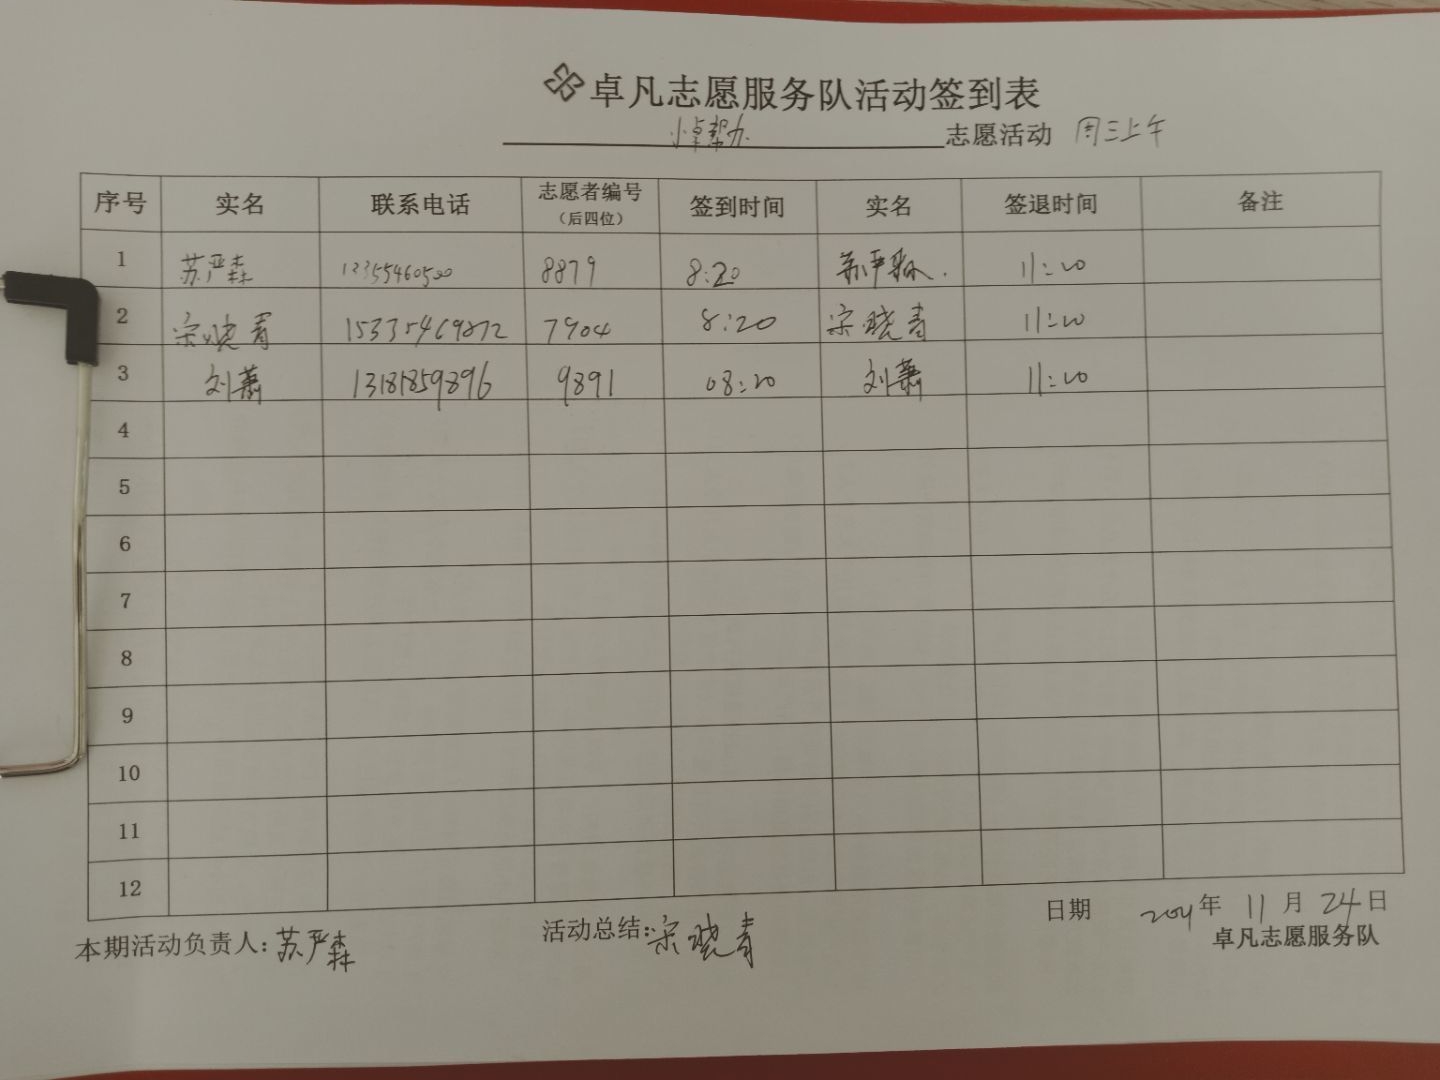 卓凡志愿服务队活动签到表
小卓帮办 志愿活动 周三上午
序号 实名 联系电话 志愿者编号（后四位） 签到时间 实名 签退时间 备注
1 苏严森 12355460500 8879 8:20 苏严森 11:20
2 宋晓青 15335469872 7904 8:20 宋晓青 11:20
3 刘萧 13181859896 9891 08:20 刘萧 11:20
4
5
6
7
8
9
10
11
12
本期活动负责人:苏严森 活动总结:宋晓青 日期 年 11月24日
卓凡志愿服务队